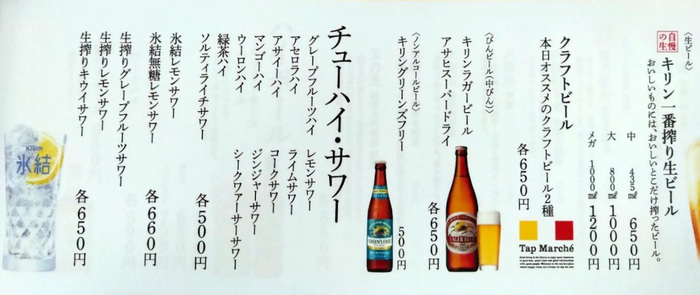 〈生ビール〉
自慢の生
キリン一番搾り生ビール
おいしいものには、おいしいとこだけ搾ったビール。
中 435㎖ 650円
大 800㎖ 1000円
メガ 1000㎖ 1200円
クラフトビール
本日オススメのクラフトビール2種
各650円
Tap Marché
〈びんビール(中びん)〉
キリンラガービール
アサヒスーパードライ
各650円
〈ノンアルコールビール〉
キリングリーンズフリー
500円
チューハイ・サワー
グレープフルーツハイ
アセロラハイ
アサイーハイ
マンゴーハイ
ウーロンハイ
緑茶ハイ
レモンサワー
ライムサワー
コークサワー
ジンジャーサワー
シークワァーサーサワー
ソルティライチサワー
各500円
氷結レモンサワー
氷結無糖レモンサワー
各660円
生搾りグレープフルーツサワー
生搾りレモンサワー
生搾りキウイサワー
各650円
KIRIN
氷結
GREEN'S FREE
LAGER BEER